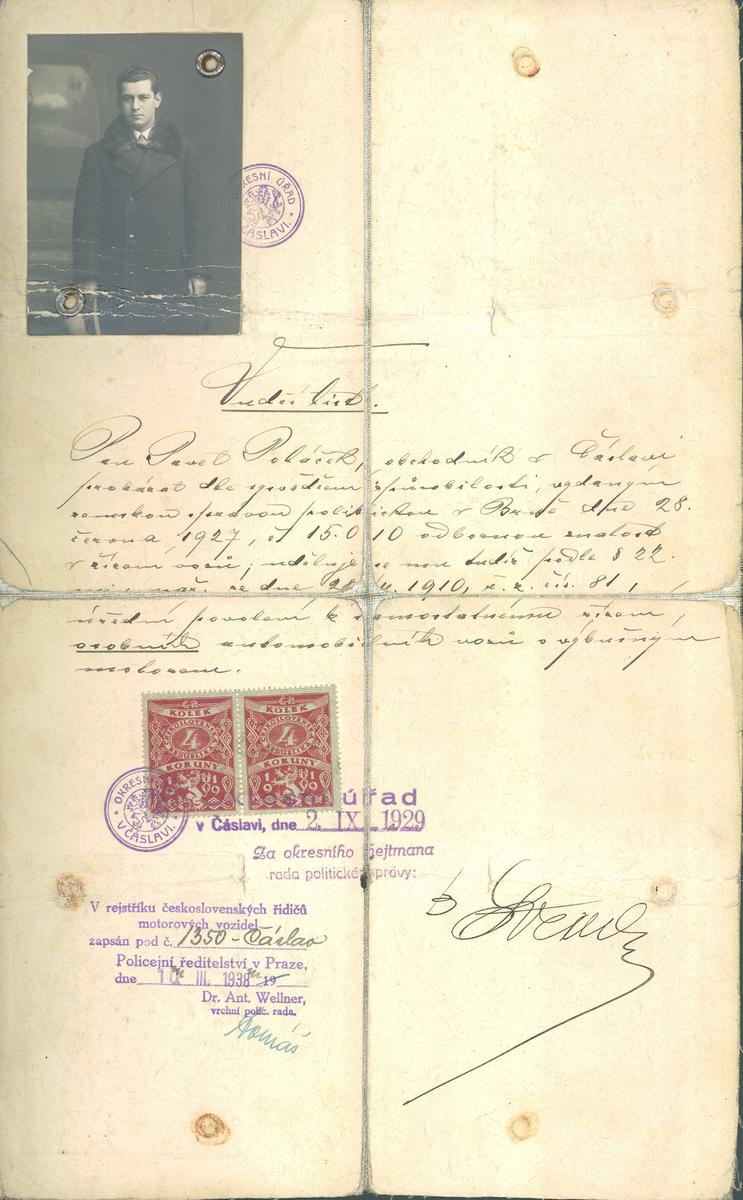 OKRESNÍ ÚŘAD V ČÁSLAVI.
Vůdčí list.
Pan Pavel Poláček, obchodník v Čáslavi
prokázal dle vysvědčení způsobilosti, vydaného
zemskou správou politickou v Brně dne 28.
června 1927, č. 15.010 odbornou znalost
v řízení vozů; uděluje se mu tudíž podle § 22.
nař. ze dne 28. 1910, ř. z. čís. 81,
úřední povolení k samostatnému řízení
osobních automobilních vozů s výbušným
motorem.
KOLEK
ČESKOSLOVENSKÁ
REPUBLIKA
4
KORUNY
1919
KOLEK
ČESKOSLOVENSKÁ
REPUBLIKA
4
KORUNY
1919
OKRESNÍ ÚŘAD V ČÁSLAVI.
Okresní úřad
v Čáslavi, dne 2. IX. 1929
Za okresního hejtmana
rada politické správy:
V rejstříku československých řidičů
motorových vozidel
zapsán pod č. 1350-Čáslav
Policejní ředitelství v Praze,
dne III. 1938 19
Dr. Ant. Wellner,
vrchní polic. rada.
Tomáš